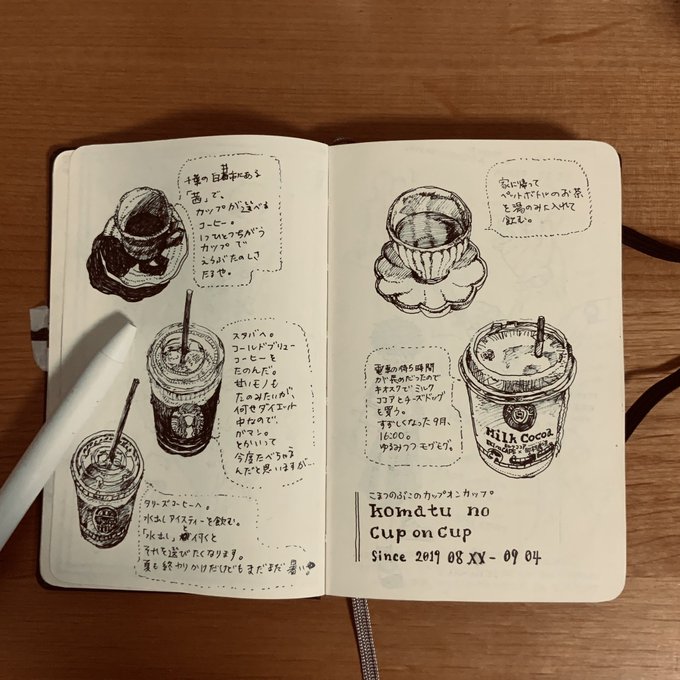 千葉の自暮本にある
「茜」で、
カップが選べる
コーヒー。
1つひとつちがう
カップで
えらぶたのしさ
たるや。
スタバへ。
コールドブリュー
コーヒーを
たのんだ。
甘いモノも
たのみたいが、
何せダイエット
中なので、
ガマン。
とかいって
今度たべちゃう
んだと思いますが…
タリーズコーヒーへ。
水出しアイスティーを飲む。
「水出し」と付くと
それを選びたくなります。
夏も終わりかけだけどもまだまだ暑い
家に帰って
ペットボトルのお茶
を湯のみに入れて
飲む。
電車の待ち時間
が長めだったので
キオスクでミルク
ココアとチーズドッグ
を買う。
すずしくなった9月、
16:00。
ゆるみつつモグモグ。
Milk Cocoa
こまつのぶこのカップオンカップ
komatu no
Cup on Cup
Since 2019 08 XX - 09 04